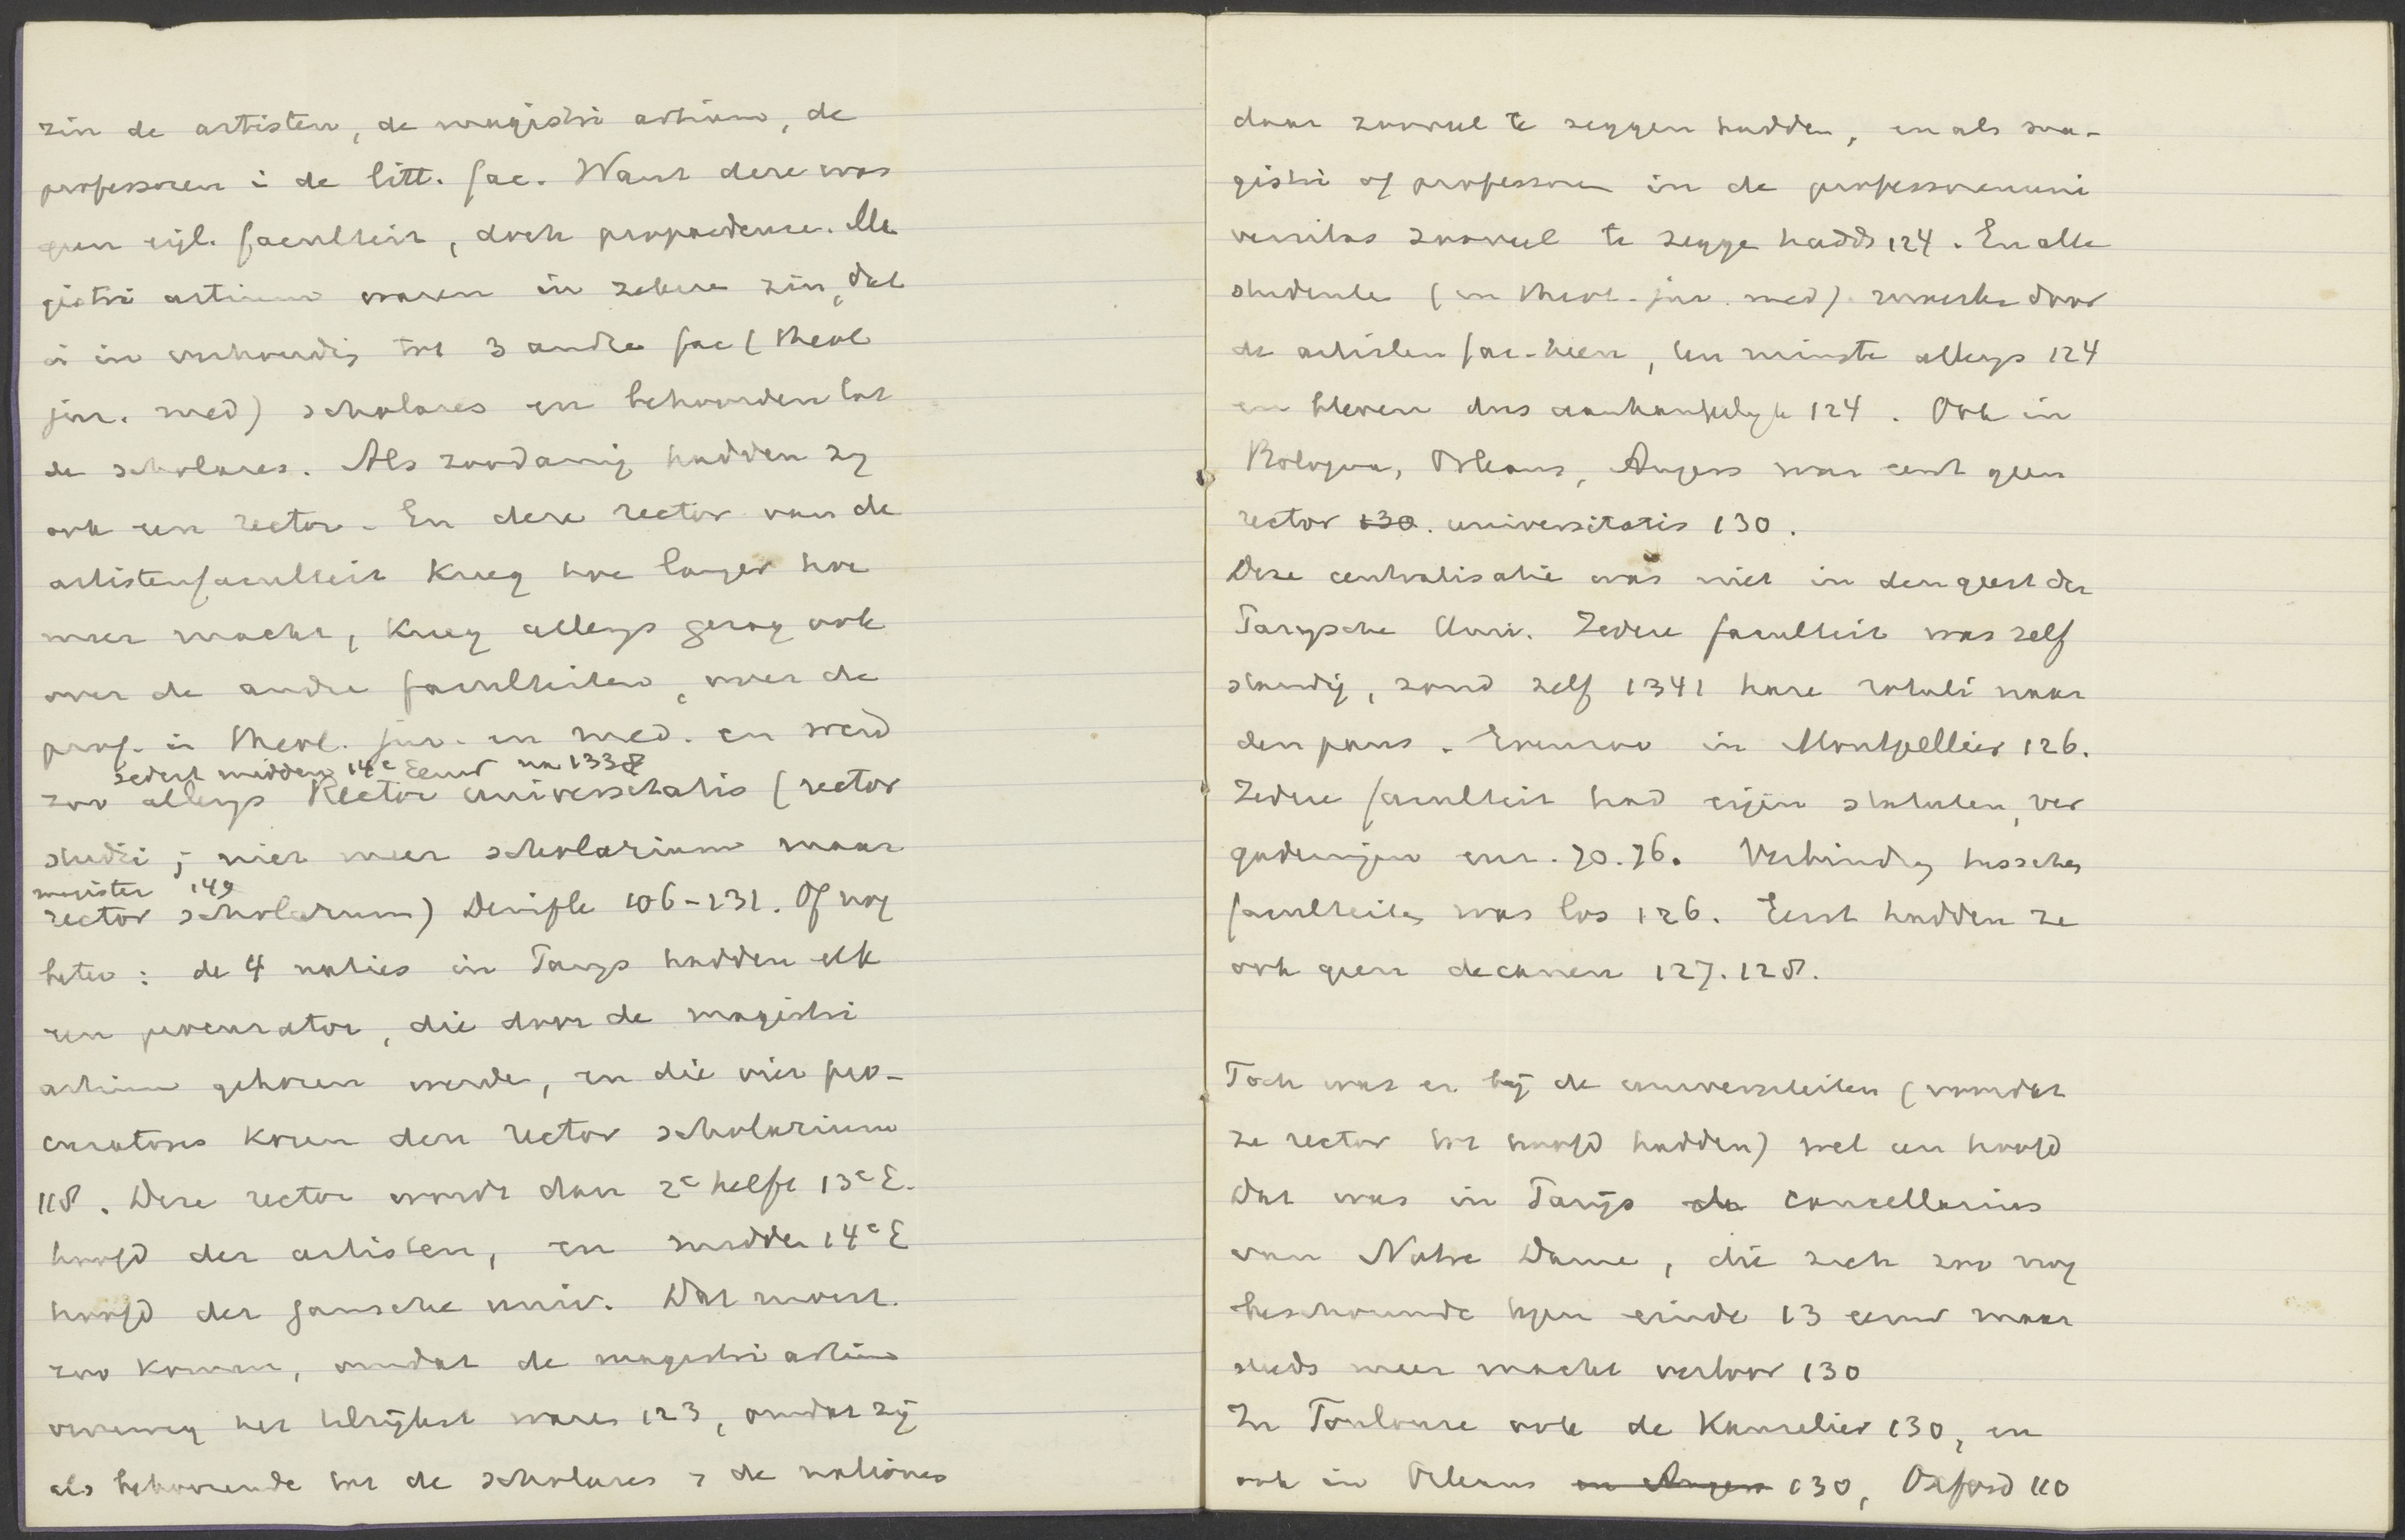 zijn de artisten, de magistri artium, de
professoren i de litt. fac. Want deze was
geen eigl. faculteit, doch propaedeuse. Ma
gistri artium waren in zekere zin, dat
is in verhouding tot 3 andre fac (theol
jur. med) scholares en behoorden tot
de scholares. Als zoodanig hadden zy
ook een rector. En deze rector van de
artistenfaculteit kreeg hoe langer hoe
meer macht, kreeg allengs gezag ook
over de andre faculteiten, over de
prof. in theol. jur. en med. en werd
sedert midden 14e Eeuw na 1338
zoo allengs Rector universitatis (rector
studii; niet meer scholarium maar
magister 149
rector scholarum) Denifle 106-131. Of nog
beter: de 4 naties in Parys hadden elk
een procurator, die door de magistri
artium gekozen werde, en die vier pro-
curatores kozen den rector scholarium
118. Deze rector wordt dan 2e helft 13e E.
hoofd der artisten, en midden 14e E
hoofd der gansche univ. Dat moest
zoo komen, omdat de magistri artium
verreweg het talrijkst waren 123, omdat zij
als behoorende tot de scholares i de nationes
daar zooveel te zeggen hadden, en als ma-
gistri of professoren in de professorenuni
versitas zooveel te zegge hadd 124. En alle
studenten (in theol. jur. med) moesten door
de artisten fac. heen, ten minste allengs 124
en bleven dus aanhankelyk 124. Ook in
Bologna, Orleans, Angers was eerst geen
rector 130. universitatis 130.
Deze centralisatie was niet in den geest der
Parysche Univ. Iedere faculteit was zelf
standig, zond zelf 1341 hare rotuli naar
den paus. Evenzoo in Montpellier 126.
Iedere faculteit had eigen statuten, ver
gaderingen enz. 70.76. Verbinding tusschen
faculteiten was los 126. Eerst hadden ze
ook geen decanen 127.128.
Toch was er bij de universiteiten (voordat
ze rector tot hoofd hadden) wel een hoofd
Dat was in Parijs de cancellarius
van Notre Dame, die zich zoo nog
beschouwde tegen einde 13 eeuw maar
steeds meer macht verloor 130
In Toulouse ook de Kanselier 130, en
ook in Orleans en Angers 130, Oxford 110